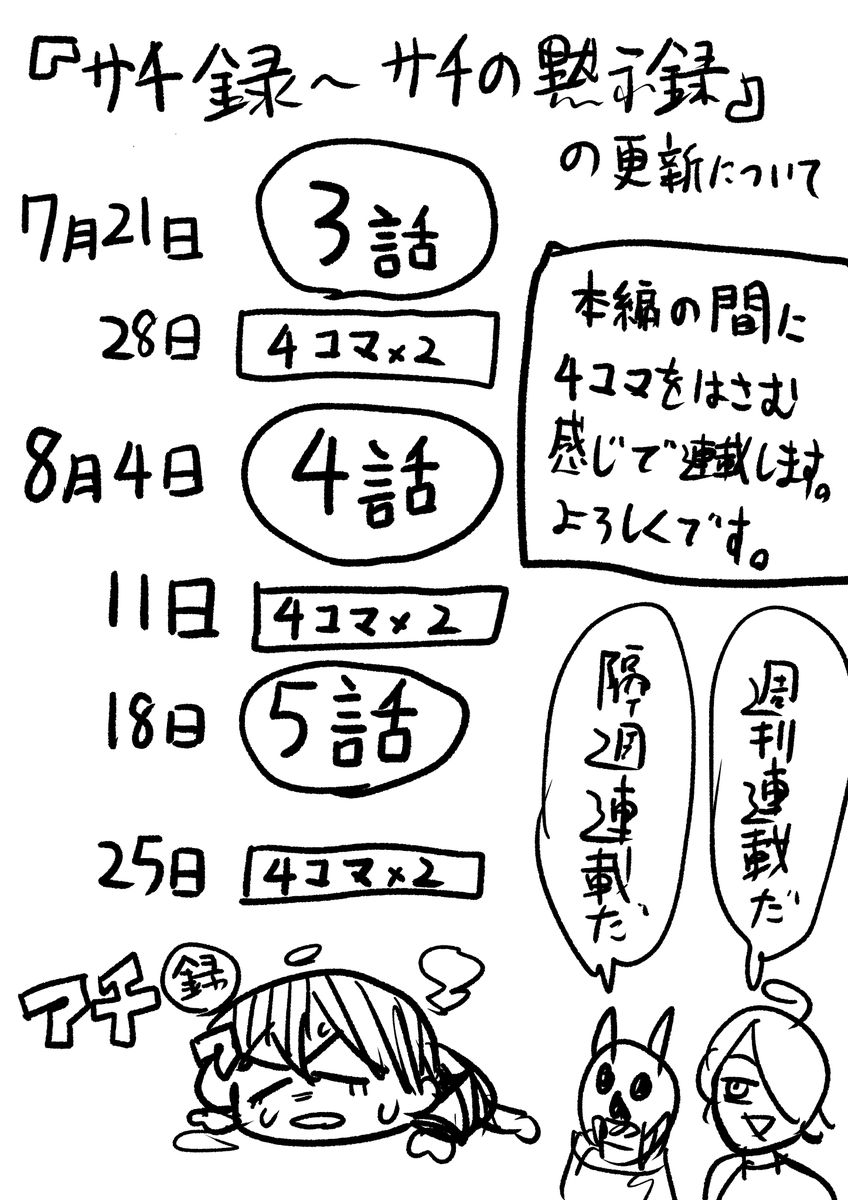 『サチ録〜サチの黙示録』
の更新について
7月21日 3話
28日 4コマ×2
8月4日 4話
11日 4コマ×2
18日 5話
25日 4コマ×2
本編の間に
4コマをはさむ
感じで連載します。
よろしくです。
週刊連載だ
隔週連載だ
アチ録